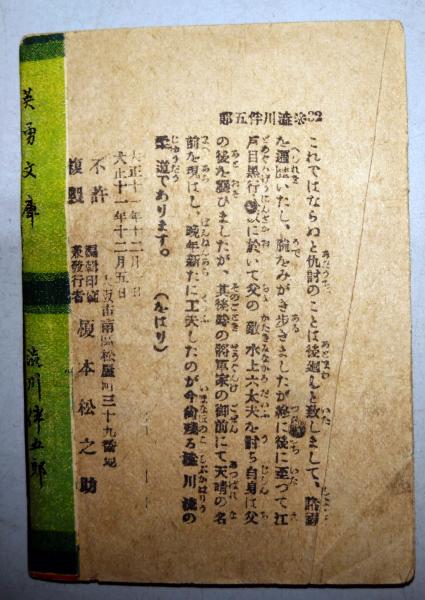 32 柔澁川伴五郎
これではならぬと仇討のことは後廻しと致しまして、諸國
を遍歴いたし、腕をみがき歩きましたが終に後に至つて江
戸目黒行人坂に於いて父の敵水上六太夫を討ち自身は父
の後を襲ひましたが、其後時の將軍家の御前にて天晴の名
前を現はし、晩年新たに工夫したのが今尚殘る澁川流の
柔道であります。 (をはり)
大正十一年十二月 日
大正十一年十二月五日
不許
複製
大阪市南區松屋町三十九番地
編輯印刷
兼發行者 榎本松之助
英勇文庫
澁川伴五郎